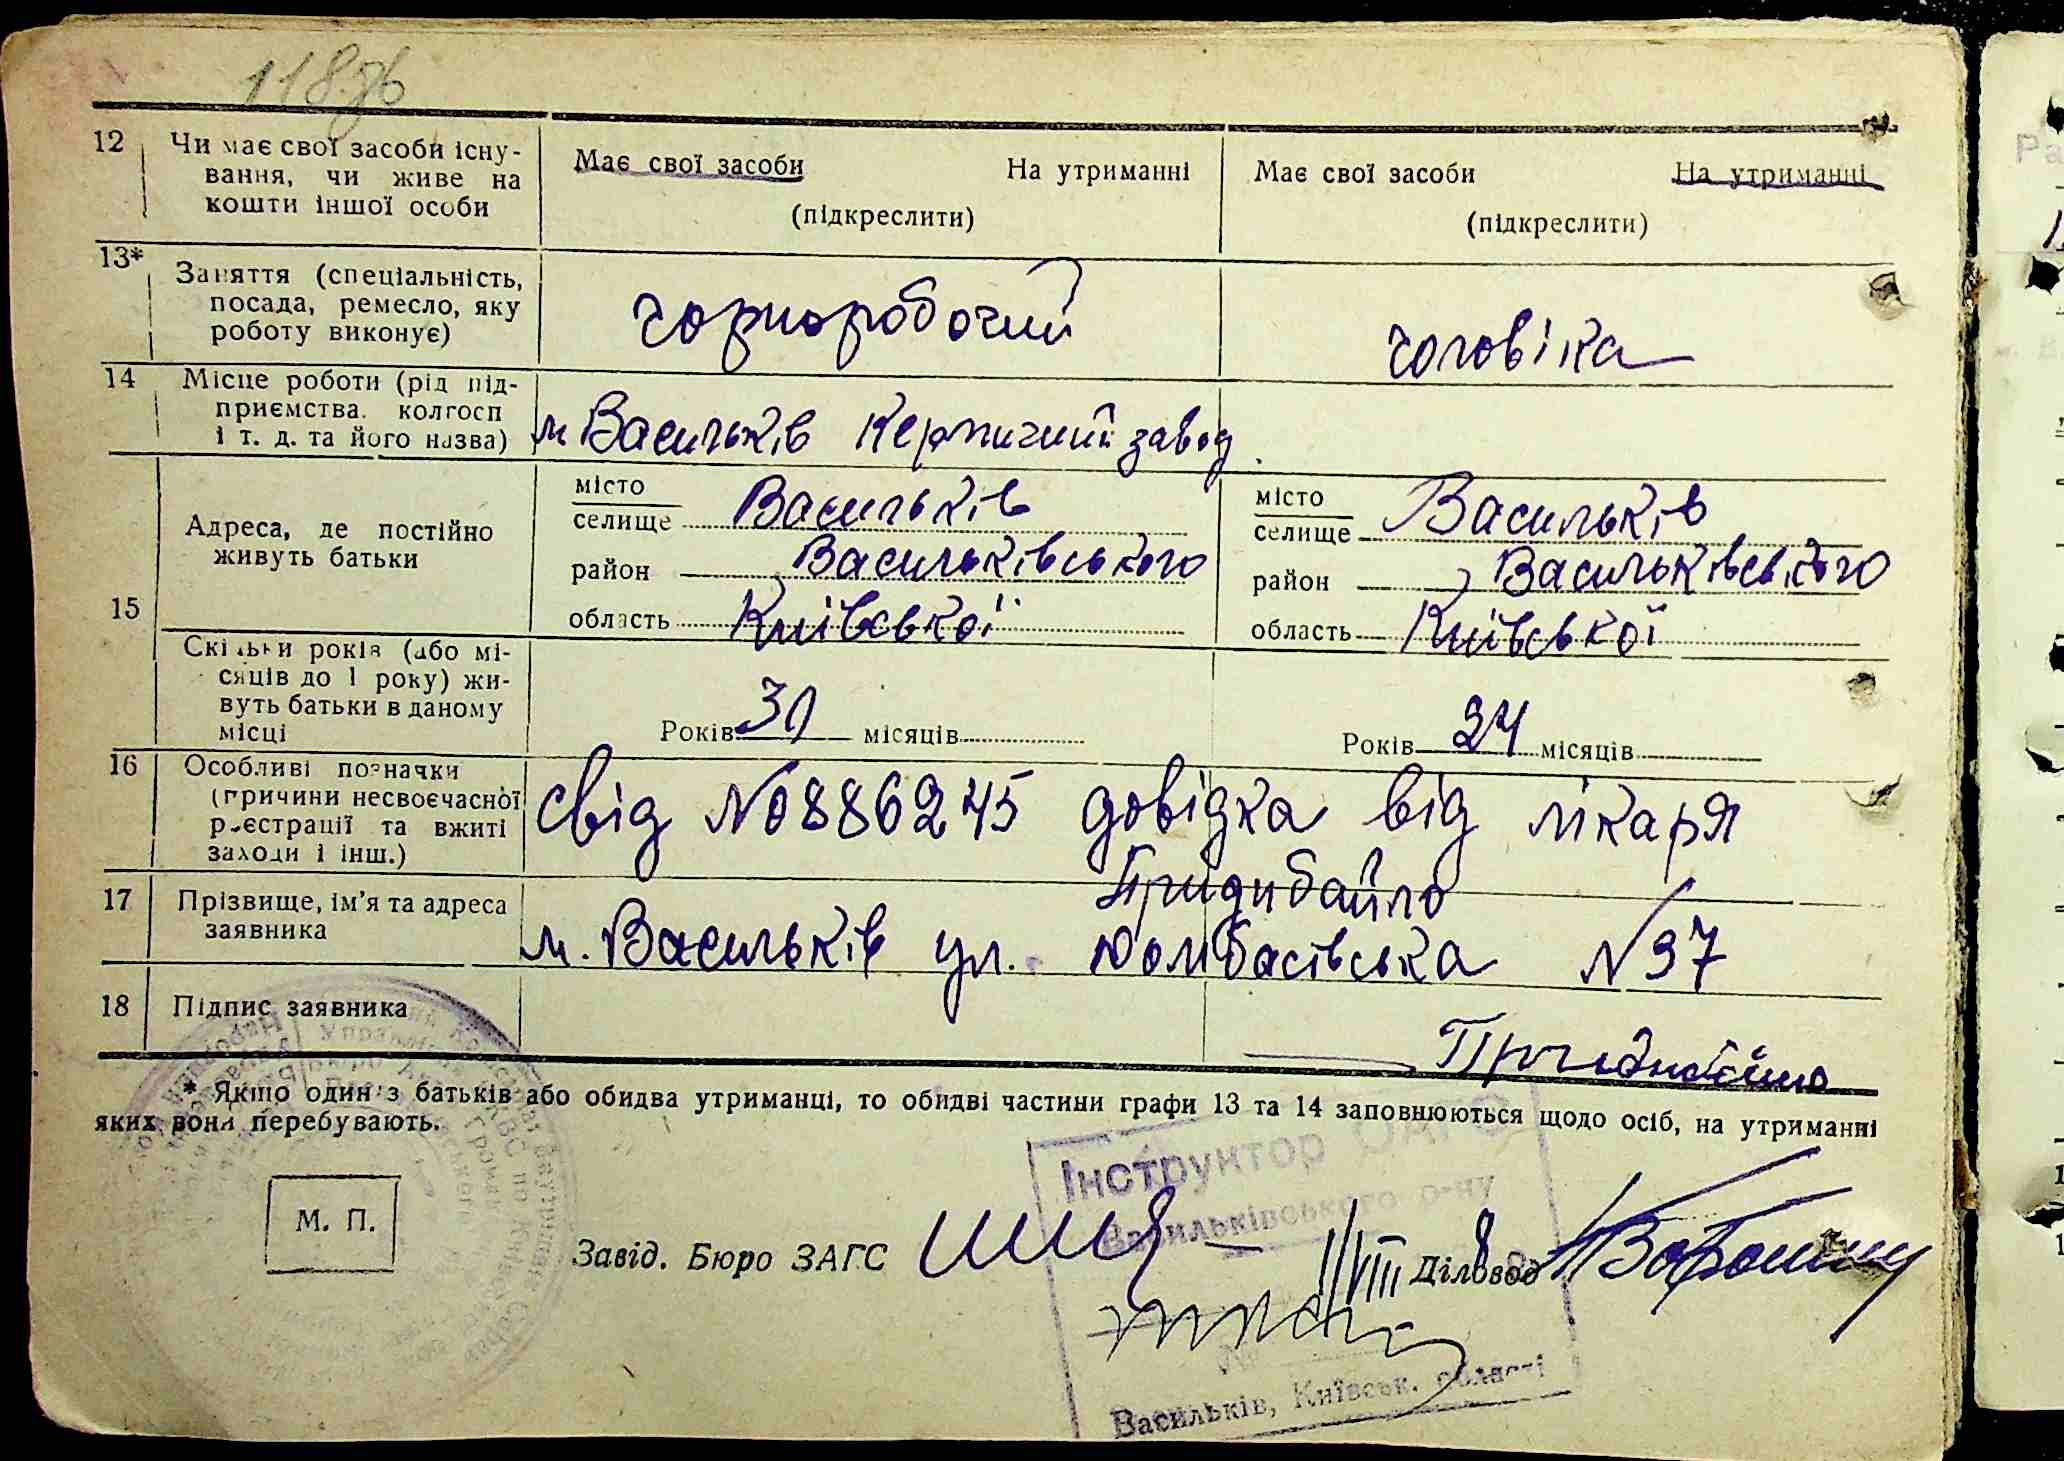 118зв
12 Чи має свої засоби існу-
вання, чи живе на
кошти іншої особи
Має свої засоби На утриманні
(підкреслити)
Має свої засоби На утриманні
(підкреслити)
13* Заняття (спеціальність,
посада, ремесло, яку
роботу виконує)
чорноробочий
чоговіка
14 Місце роботи (рід під-
приємства, колгосп
і т. д. та його назва)
м Васильків Керпичний завод
15 Адреса, де постійно
живуть батьки
місто
селище Васильків
район Васильківського
область Київської
місто
селище Васильків
район Васильківського
область Київської
Скільки років (або мі-
сяців до 1 року) жи-
вуть батьки в даному
місці
Років 31 місяців
Років 24 місяців
16 Особливі позначки
(причини несвоєчасної
реєстрації та вжиті
заходи і інш.)
свід №0886245 довідка від лікаря
17 Прізвище, ім'я та адреса
заявника
Придибайло
м. Васильків ул. Домбасівська №37
18 Підпис заявника
* Якщо один з батьків або обидва утриманці, то обидві частини графи 13 та 14 заповнюються щодо осіб, на утриманні
яких вони перебувають.
М. П.
Завід. Бюро ЗАГС
Діловод
Інструктор ОАГС
Васильківського р-ну
11/VIII
№
Васильків, Київськ. області